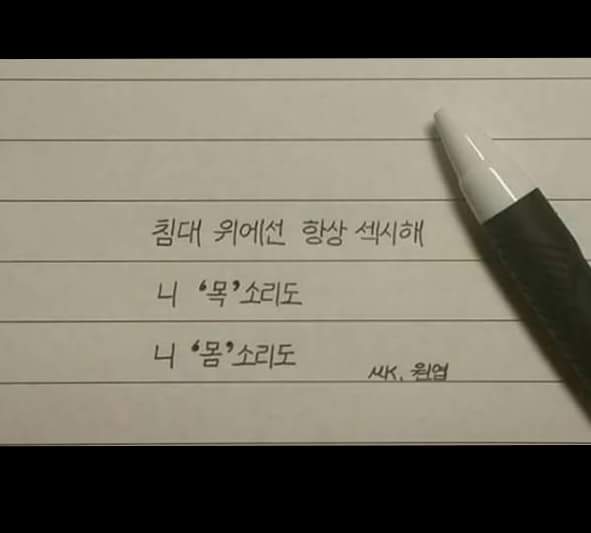 침대 위에선 항상 섹시해
니 ‘목’소리도
니 ‘몸’소리도
원엽